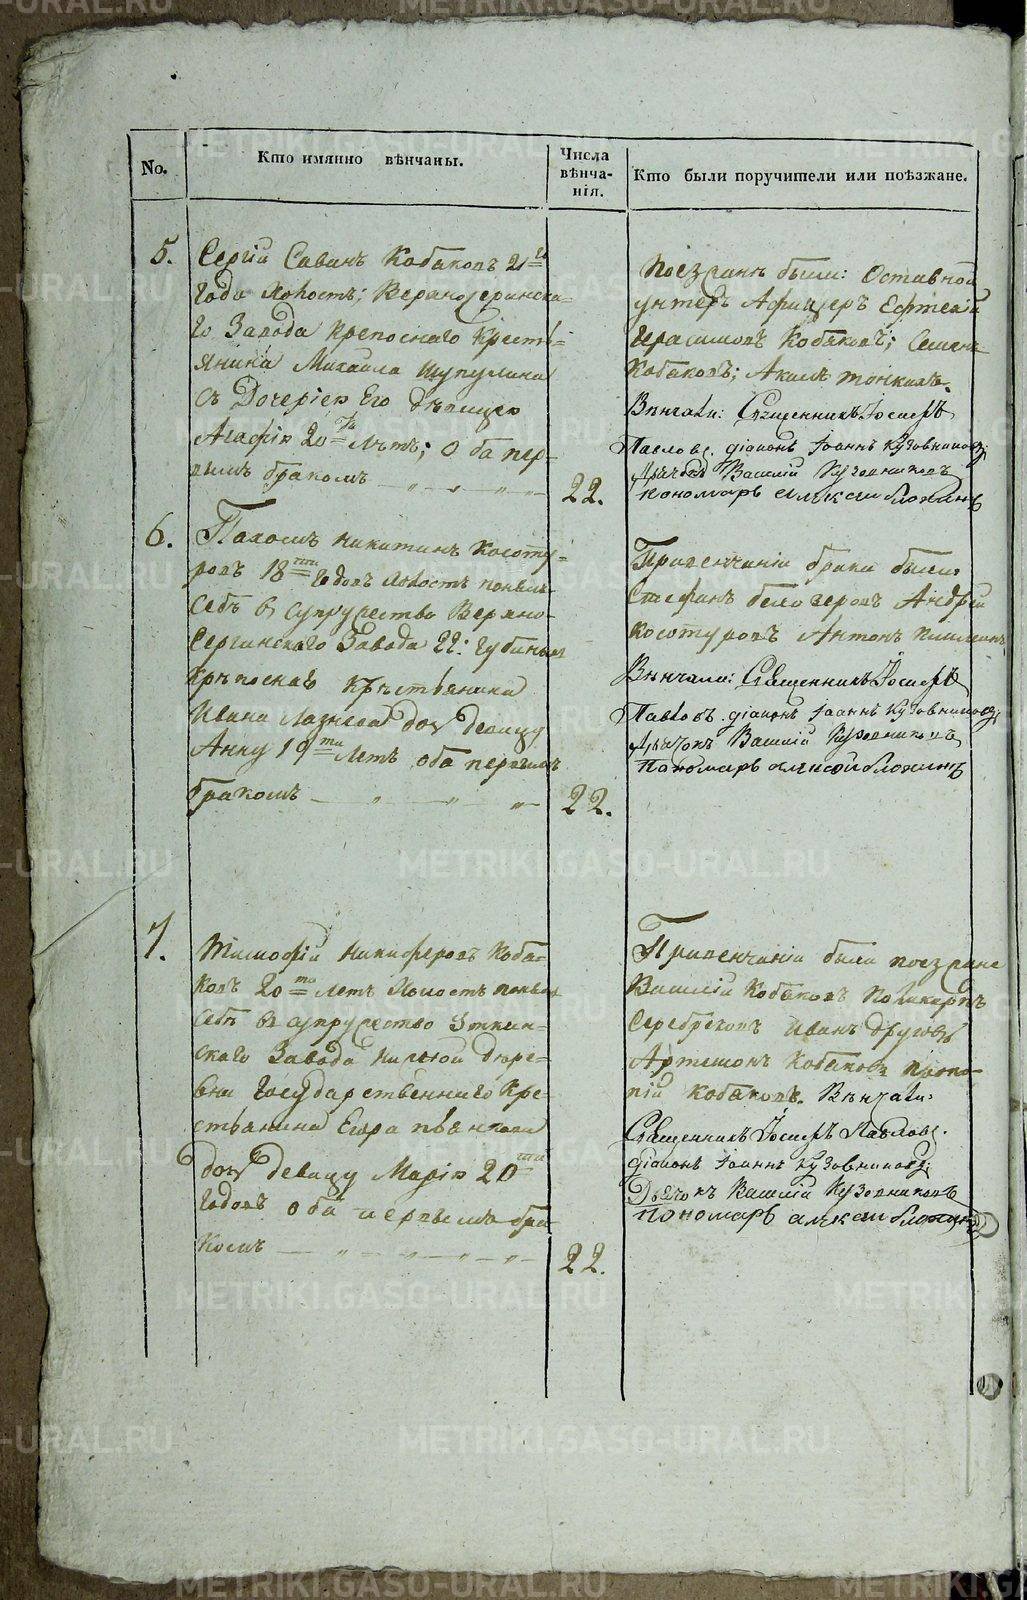 No.
Кто имянно вѣнчаны.
Числа
вѣнча-
нія.
Кто были поручители или поѣзжане.
5.
Сергій Саванъ Кобяковъ 21го
года холостъ; Верхносергинска-
го Завода крепоснаго Кресть-
янина Михаила
съ Дочерью Его дѣвицею
Агафію 20ти Лѣтъ; Оба пер-
вымъ бракомъ
22.
Поезжанѣ были: Оставной
унтеръ Афицеръ Ефтефій
Герасимовъ Кобяковъ; Семенъ
Кобяковъ; Акимъ
Венчали: Священникъ Іосифъ
Павловъ. діаконъ Іоаннъ Кузовниковъ;
Дьячокъ Василій Кузовниковъ
пономарь алѣксей блохинъ
6.
Пахомъ Никитинъ Косоту-
ровъ 18ти Годовъ Холостъ понялъ
Себѣ въ супружество Верхно-
Сергинскаго Завода 22:
Крѣпоснаго Крѣстьянина
Ивана дочь Девицу
Анну 19ти Летъ оба первымъ
бракомъ
22.
Привенчаніи брака были
Стефанъ белозеровъ Андрей
Косотуровъ Антонъ
Вѣнчали: Священникъ Іосифъ
Павловъ. діаконъ Іоаннъ Кузовниковъ;
Дьячокъ Василій Кузовниковъ
Пономарь алексей блохинъ
7.
Тимофій Никифоровъ Кобя-
ковъ 20ти Летъ Холостъ понялъ
себѣ въ супружество Уткин-
скаго Завода дере-
вни Государственнаго Кре-
стьянина Егора
дочь девицу Марію 20ти
Годовъ оба первымъ бра-
комъ
22.
Привенчаніи были поезжане
Василій Кобяковъ Поликарпъ
Серебрековъ Иванъ
Артемонъ Кобяковъ Проко-
пій Кобяковъ. Вѣнчали:
Священникъ Іосифъ Павловъ.
діаконъ Іоаннъ Кузовниковъ;
Дьячокъ Василій Кузовниковъ
пономарь алѣксей блохинъ
METRIKI.GASO-URAL.RU